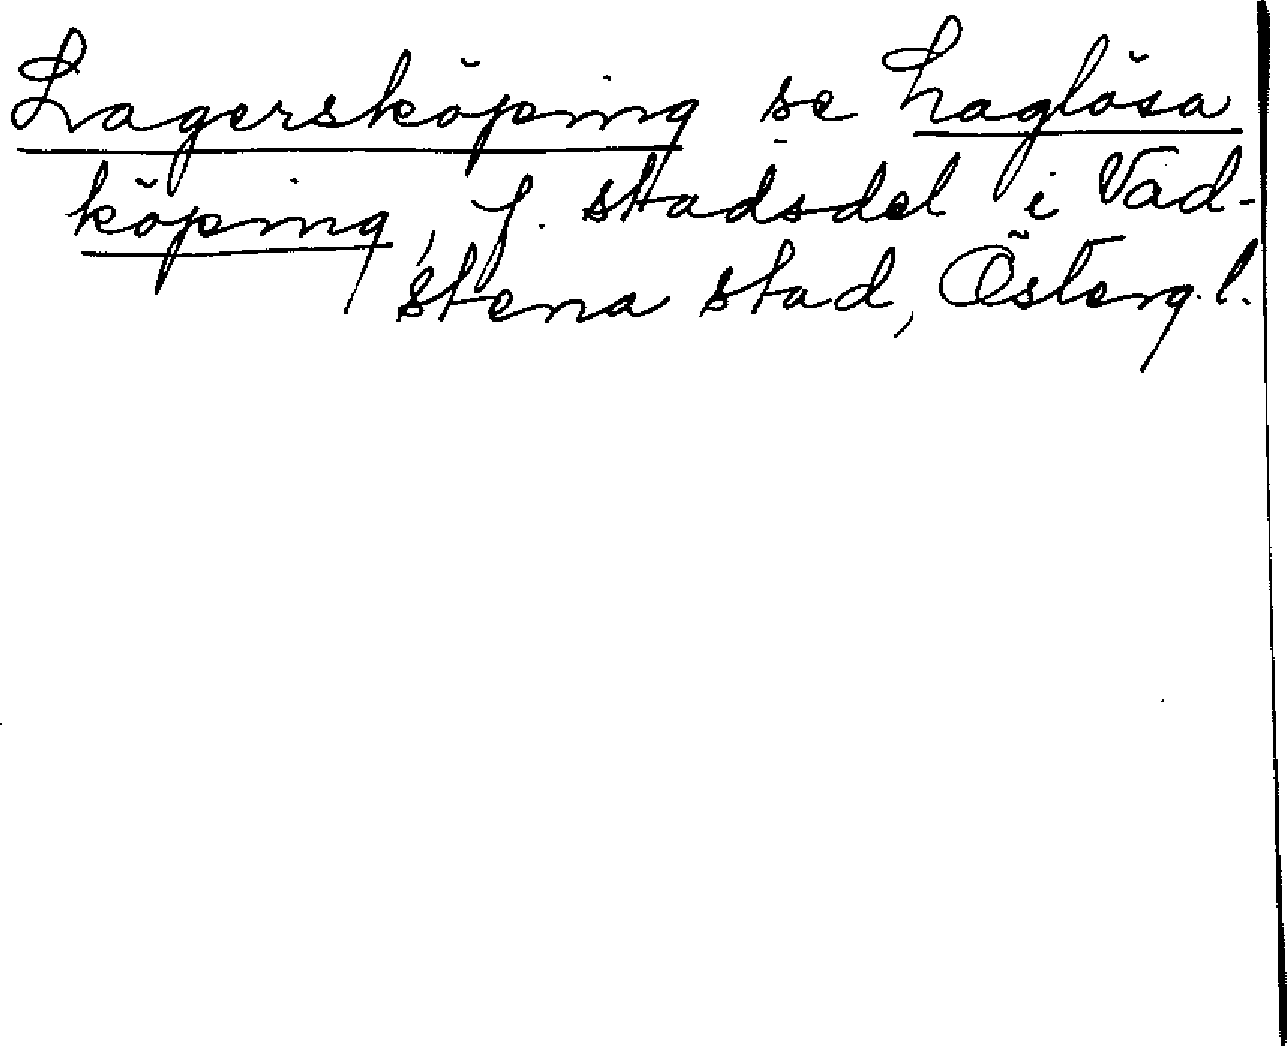 Lagersköping se Laglösa
köping, f. stadsdel i Vad-
stena stad, Österg.l.